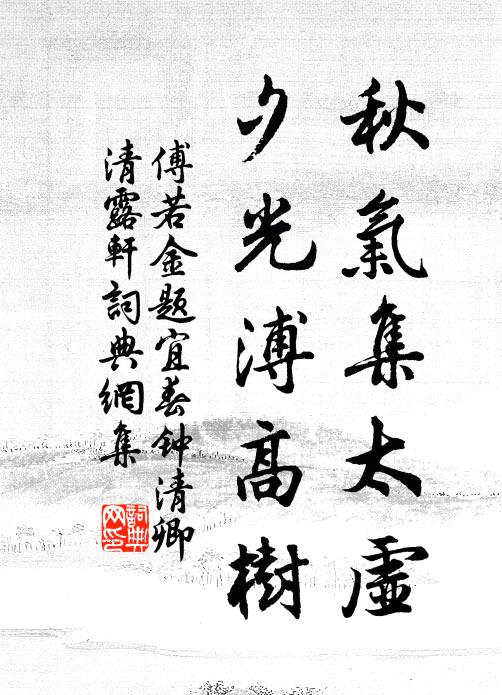 秋氣集太虛
夕光溥高樹
傅若金題宜春钟清卿
清露軒詞典網集
詞典网印